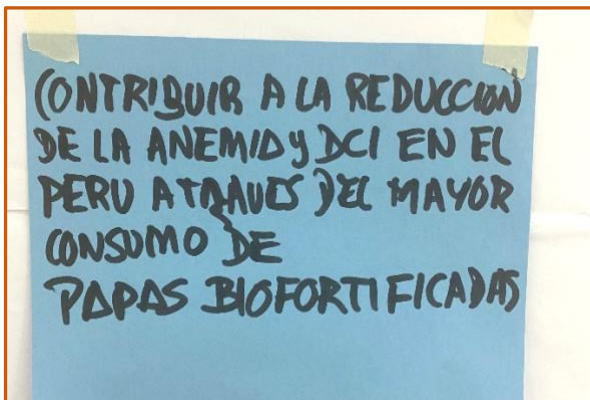 CONTRIBUIR A LA REDUCCION
DE LA ANEMIA y DCI EN EL
PERU ATRAVES DEL MAYOR
CONSUMO DE
PAPAS BIOFORTIFICADAS